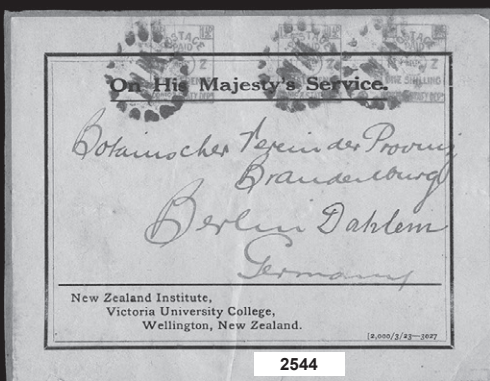 POSTAGE
PAID
N Z
ONE SHILLING
On His Majesty's Service.
Botanischer Verein der Provinz
Brandenburg
Berlin Dahlem
Germany
New Zealand Institute,
Victoria University College,
Wellington, New Zealand.
[2,000/3/23—3027
2544